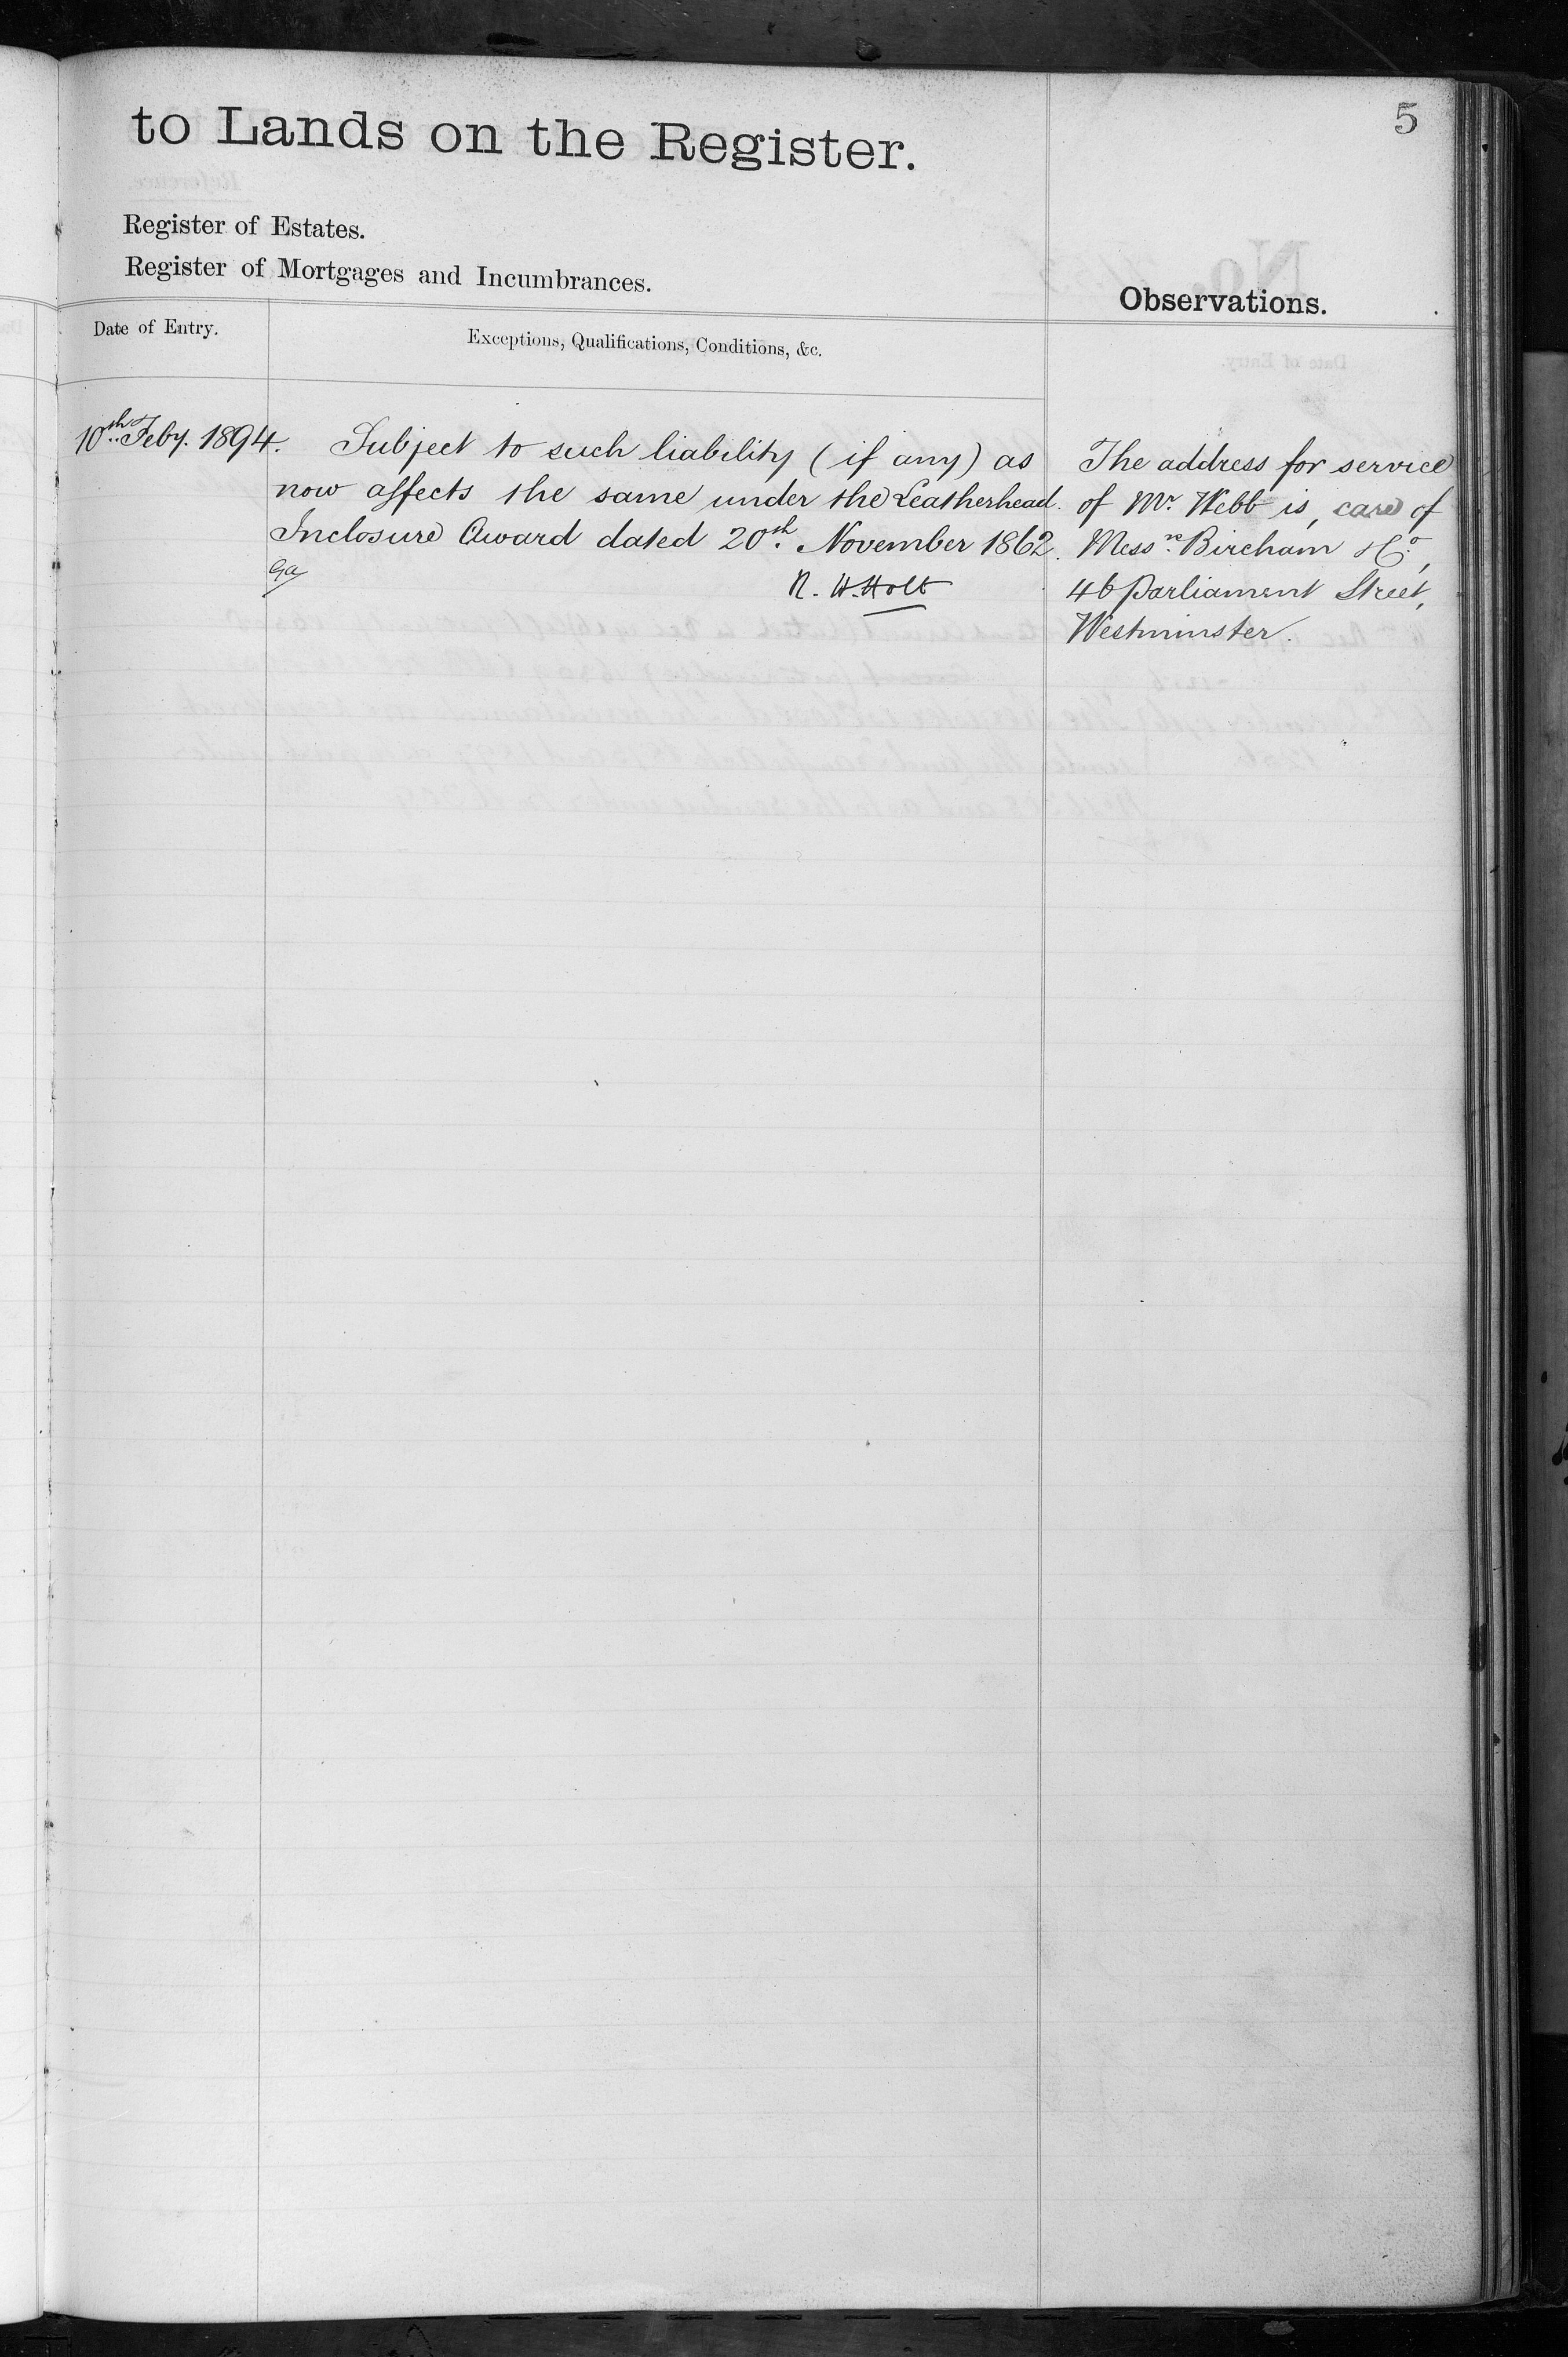 5
to Lands on the Register.
Register of Estates.
Register of Mortgages and Incumbrances.
Observations.
Date of Entry.
Exceptions, Qualifications, Conditions, &c.
10th Feby. 1894.
Subject to such liability (if any) as
now affects the same under the Leatherhead
Inclosure Award dated 20th November 1862.
N. W. Holt
The address for service
of Mr. Webb is, care of
Messrs Bircham & Co,
46 Parliament Street,
Westminster.